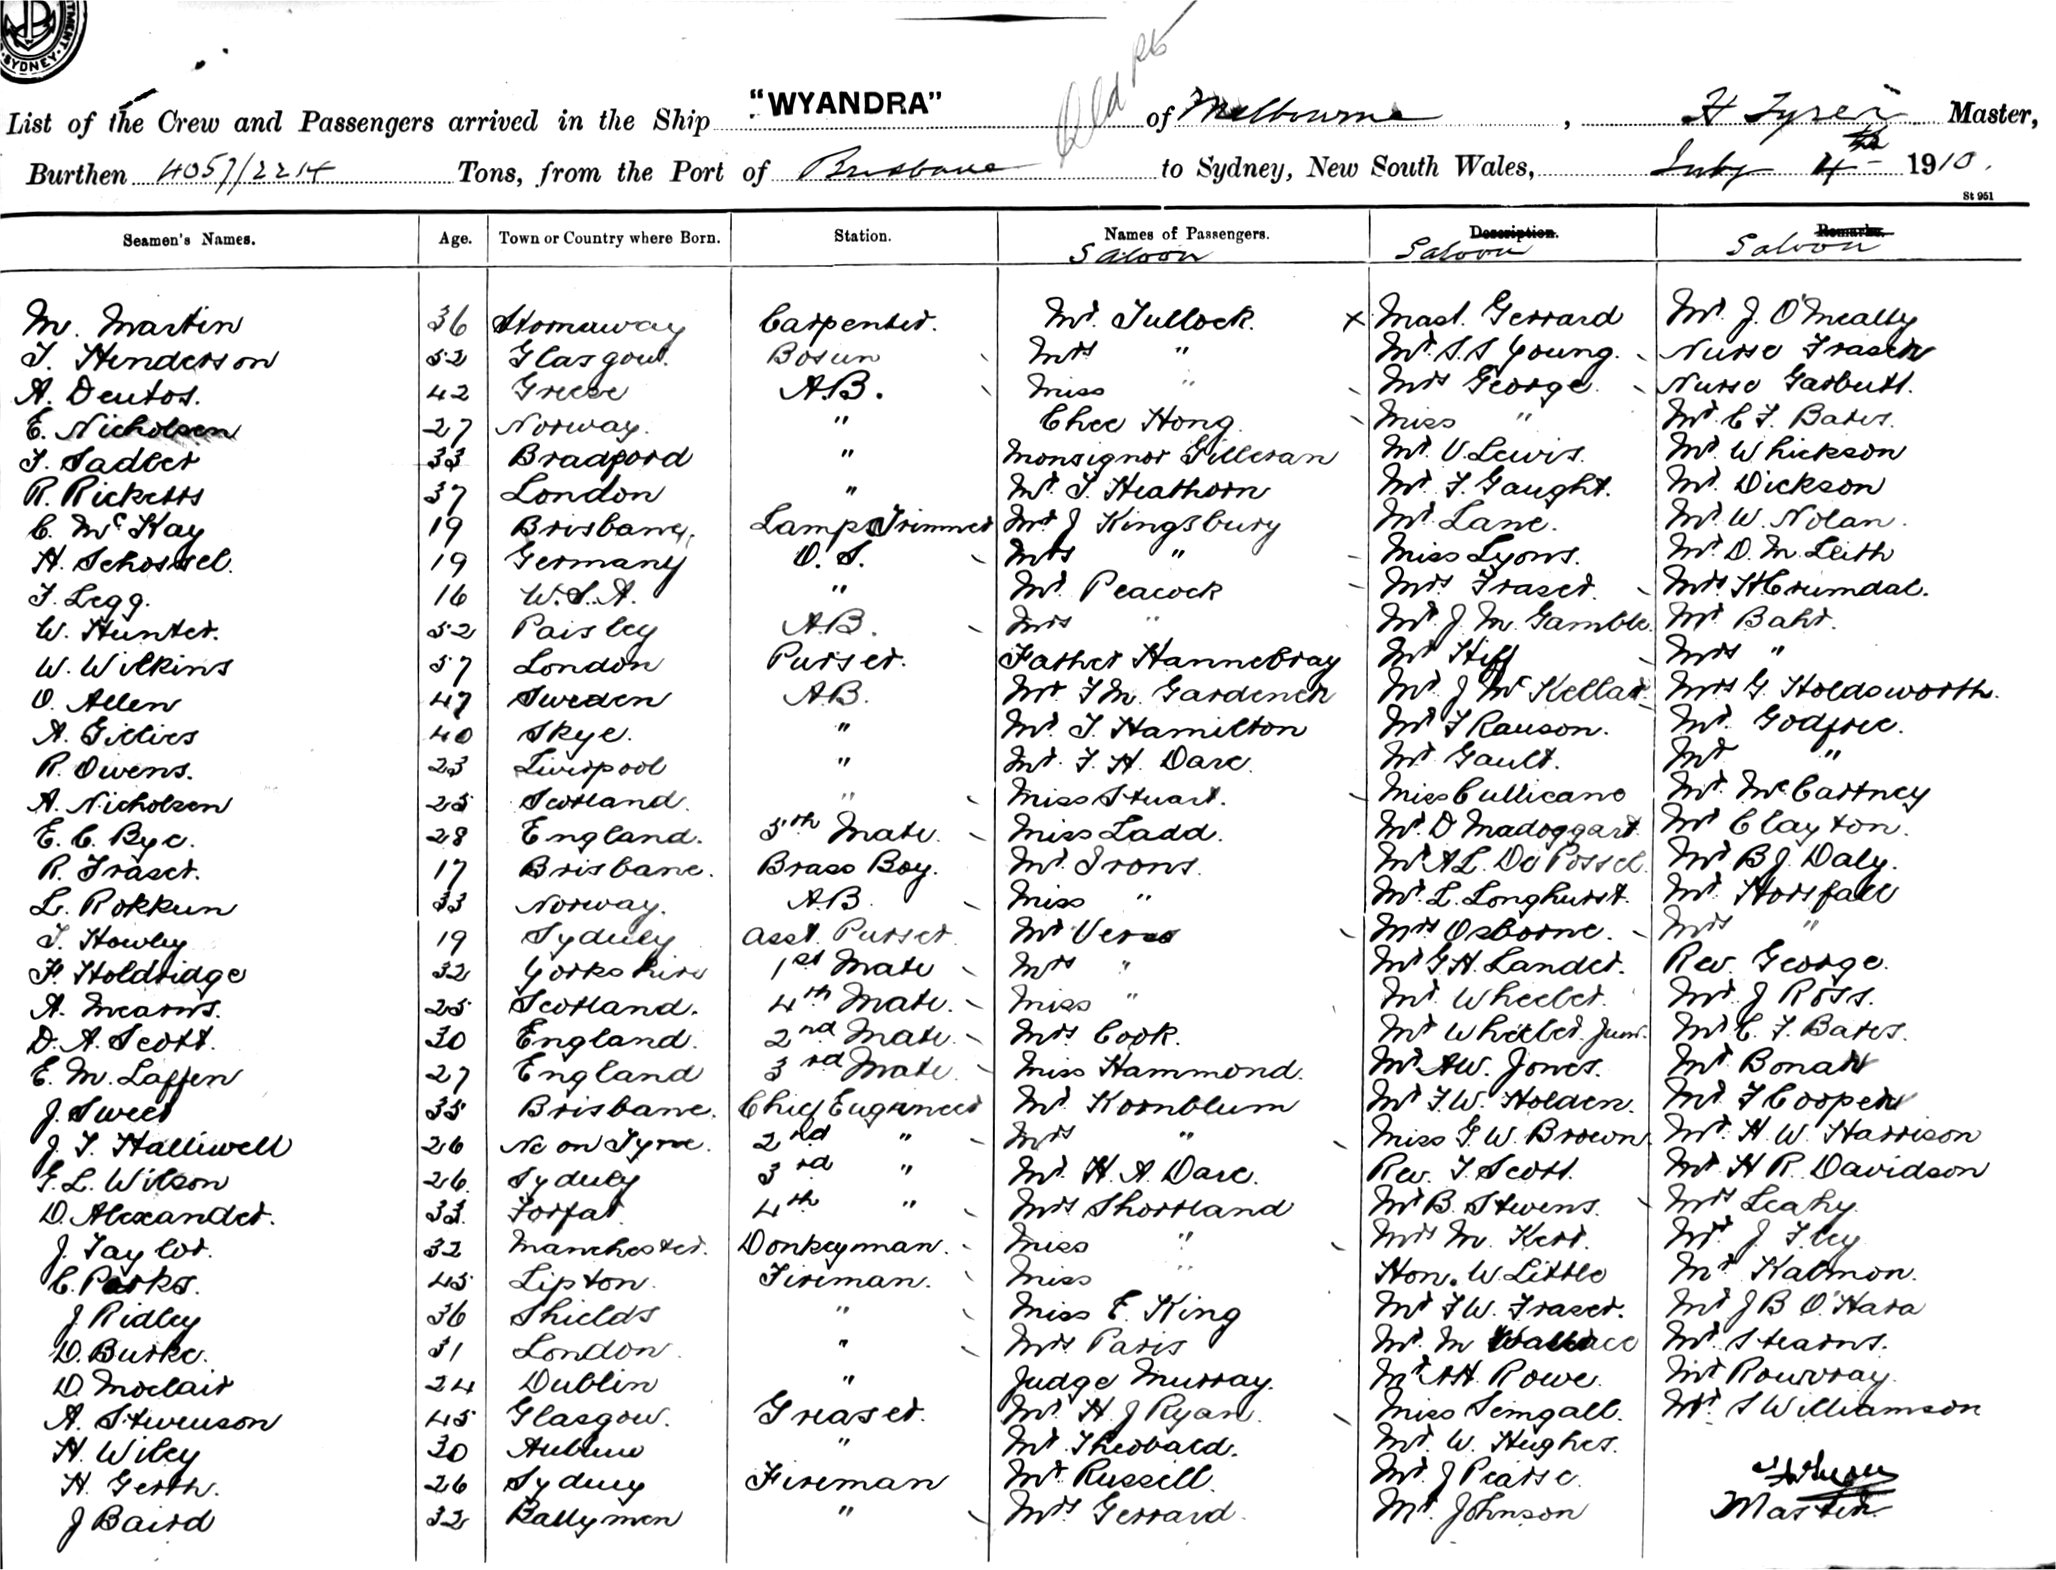 SYDNEY
Old Pt
List of the Crew and Passengers arrived in the Ship "WYANDRA" of Melbourne, H Tyrer Master,
Burthen 4057/2214 Tons, from the Port of Brisbane to Sydney, New South Wales, July 4th 1910.
St 951
Seamen's Names. Age. Town or Country where Born. Station. Names of Passengers. Description. Remarks.
Saloon Saloon Saloon
M. Martin 36 Stornaway Carpenter. Mr. Tullock. x Mast. Gerrard Mr. J. O'Mealty
T. Henderson 52 Glasgow. Bosun Mrs " Mr. S. S Young. Nurse Fraser
A. Deutos. 42 Greese A.B. Miss " Mrs George. Nurse Garbutt.
E. Nicholsen 27 Norway. " Chee Hong Miss " Mr. C F. Bates.
T. Sadler 33 Bradford " Monsignor Gilleran Mr. V. Lewis. Mr W Hickson
R. Ricketts 37 London " Mr. T. Heathorn Mr. F. Gaught. Mr. Dickson
C. McKay 19 Brisbane. Lamps Trimmer Mr J Kingsbury Mr. Lane. Mr. W. Nolan.
H. Schossel. 19 Germany O. S. Mrs " Miss Lyons. Mr. D. M. Leith
F. Legg. 16 W.S.A. " Mr. Peacock Mrs Fraser. Mrs H Crumdal.
W. Hunter. 52 Paisley A.B. Mrs " Mr. J. M. Gamble. Mr Bahr.
W. Wilkins 57 London Purser. Father Hannebray Mr Hiff Mrs "
O. Allen 47 Sweden A.B. Mr. F M. Gardener Mr. J Mc Kellar Mrs G. Holdsworth.
A. Gillies 40 Skye. " Mr. T. Hamilton Mr F Rauson. Mr. Godfree.
R. Owens. 23 Liverpool " Mr. F. H. Dare. Mr. Gault. Mr "
A. Nicholsen 25 Scotland. " Miss Stuart. Miss Cullicane Mr. McCartney
E. C. Bye. 28 England. 5th Mate. Miss Ladd. Mr. D Madoggart Mr Clayton.
R. Fraser. 17 Brisbane. Brass Boy. Mr. Irons. Mr A L. De Possel Mr B J. Daly.
L. Rokkun 33 Norway. A.B. Miss " Mr. L. Longhurst. Mr. Horsfall
T. Howley 19 Sydney Asst. Purser Mr Veros Mrs Osborne. Mrs "
F. Holdridge 32 Yorkshire 1st Mate Mrs " Mr G. H. Lander. Rev. George.
A. Mearns. 25 Scotland. 4th Mate. Miss " Mr Wheeler. Mr. J Ross.
D. A. Scott. 30 England. 2nd Mate. Mrs Cook. Mr Wheeler. Junr. Mr C. F. Bates.
E. M. Laffen 27 England 3rd Mate. Miss Hammond. Mr A W. Jones. Mr Bonar
J. Sweet 35 Brisbane. Chief Engineer Mr. Kornblum Mr. F. W. Holden. Mr. F Cooper
J. T. Halliwell 26 Nc on Tyne. 2nd " Mrs " Miss G. W. Brown Mr. H. W. Harrison
G. L. Wilson 26. Sydney 3rd " Mr. H. A. Dare. Rev. T. Scott. Mr. H R. Davidson
D. Alexander. 33. Forfar. 4th " Mrs Shortland Mr B. Stevens. Mrs Leahy.
J. Taylor. 32 Manchester. Donkeyman. Miss " Mrs M. Kerr. Mr. J. Fley
C. Parks. 45 Lipton. Fireman. Miss " Hon. W. Little Mr Kalmon.
J Ridley 36 Shields " Miss E. King Mr F W. Fraser. Mr J B O'Hara
D. Burke. 31 London. " Mrs Paris Mr. M Wallace Mr. Stearns.
D. Moclair 24 Dublin " Judge Murray. Mr A H. Rowe. Mr Rowvray.
A. Stevenson 45 Glasgow. Greaser. Mr. H. J Ryan. Miss Semgall. Mr. S Williamson
H. Wiley 30 " Mr. Theobald. Mr. W. Hughes.
H. Gerth. 26 Sydney Fireman Mr. Russell. Mr. J Pearse.
J Baird 32 Ballymen " Mrs Gerrard. Mr. Johnson Master